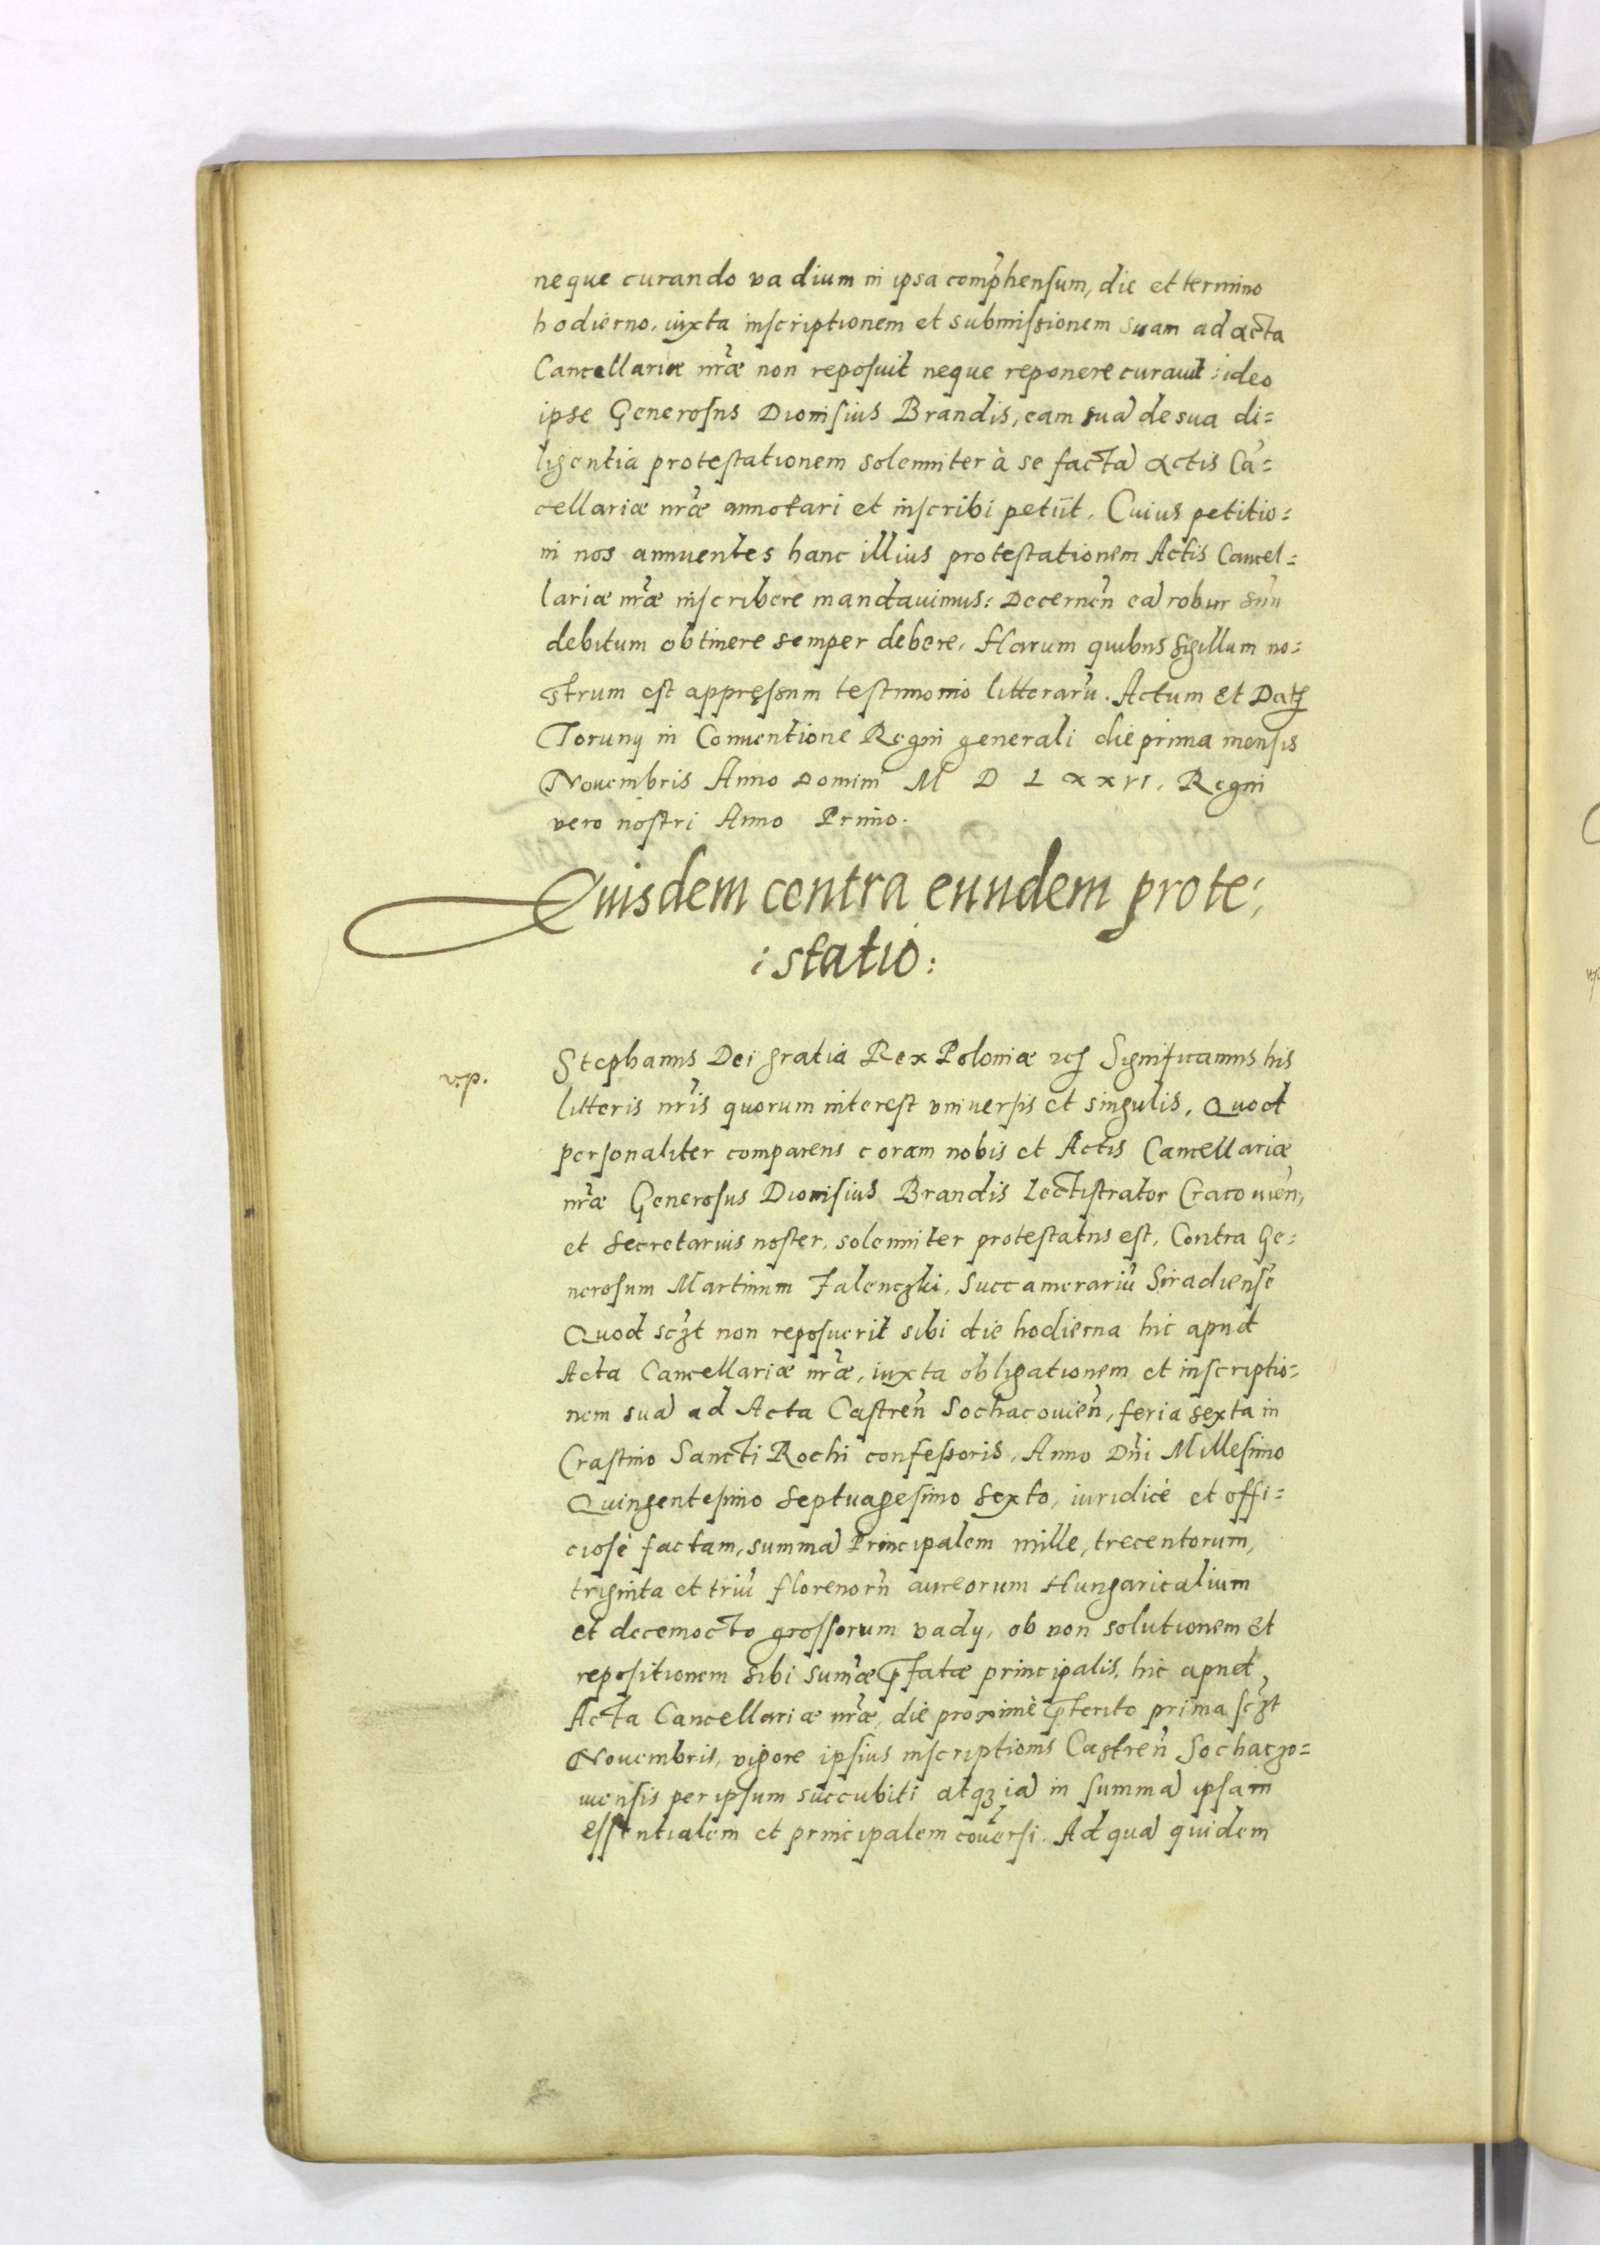 neque curando vadium in ipsa comp̃hensum, die et termino
hodierno, iuxta inscriptionem et submissionem suam ad acta
Cancellariæ nr̃æ non reposuit neque reponere curauit: ideo
ipse Generosus Dionisius Brandis, eam suã de sua di=
ligentia protestationem solenniter à se factã Actis Cã=
cellariæ nr̃æ annotari et inscribi petiit. Cuius petitio=
ni nos annuentes hanc illius protestationem Actis Cancel=
lariæ nr̃æ inscribere mandauimus: Decernen̄ eã robur suũ
debitum obtinere semper debere. Harum quibus sigillum no=
strum est appressum testimonio litterarũ. Actum et Datʒ
Toruny in Conuentione Regni generali die prima mensis
Nouembris Anno Domini M D L X X VI. Regni
vero nostri Anno Primo.
Eiusdem contra eundem prote:
:statio:
v.p.
Stephanus Dei gratia Rex Poloniæ ꝛcʒ Significamus his
litteris nr̃is quorum interest vniuersis et singulis. Quod
personaliter comparens coram nobis et Actis Cancellariæ
nr̃æ Generosus Dionisius Brandis Lectistrator Cracouien̄,
et Secretarius noster, solenniter protestatus est, Contra Ge=
nerosum Martinum Zalenczki, Succamerariũ Siradiensẽ
Quod scʒt non reposuerit sibi die hodierna hic apud
Acta Cancellariæ nr̃æ, iuxta obligationem et inscriptio=
nem suã ad Acta Castren̄ Sochacouien̄, feria sexta in
Crastino Sancti Rochi confessoris, Anno Dñi Millesimo
Quingentesimo Septuagesimo Sexto, iuridicè et offi=
ciosè factam, summã Principalem mille, trecentorum,
triginta et triũ florenorũ aureorum Hungaricalium
et decemocto grossorum vadij, ob non solutionem et
repositionem sibi sum̃æ p̃fatæ principalis, hic apud
Acta Cancellariæ nr̃æ, die proximè p̃terito prima scʒt
Nouembris, vigore ipsius inscriptionis Castren̄ Sochaczo=
uiensis per ipsum succubiti atqʒ iã in summã ipsam
essentialem et principalem cõuersi. Ad quã quidem